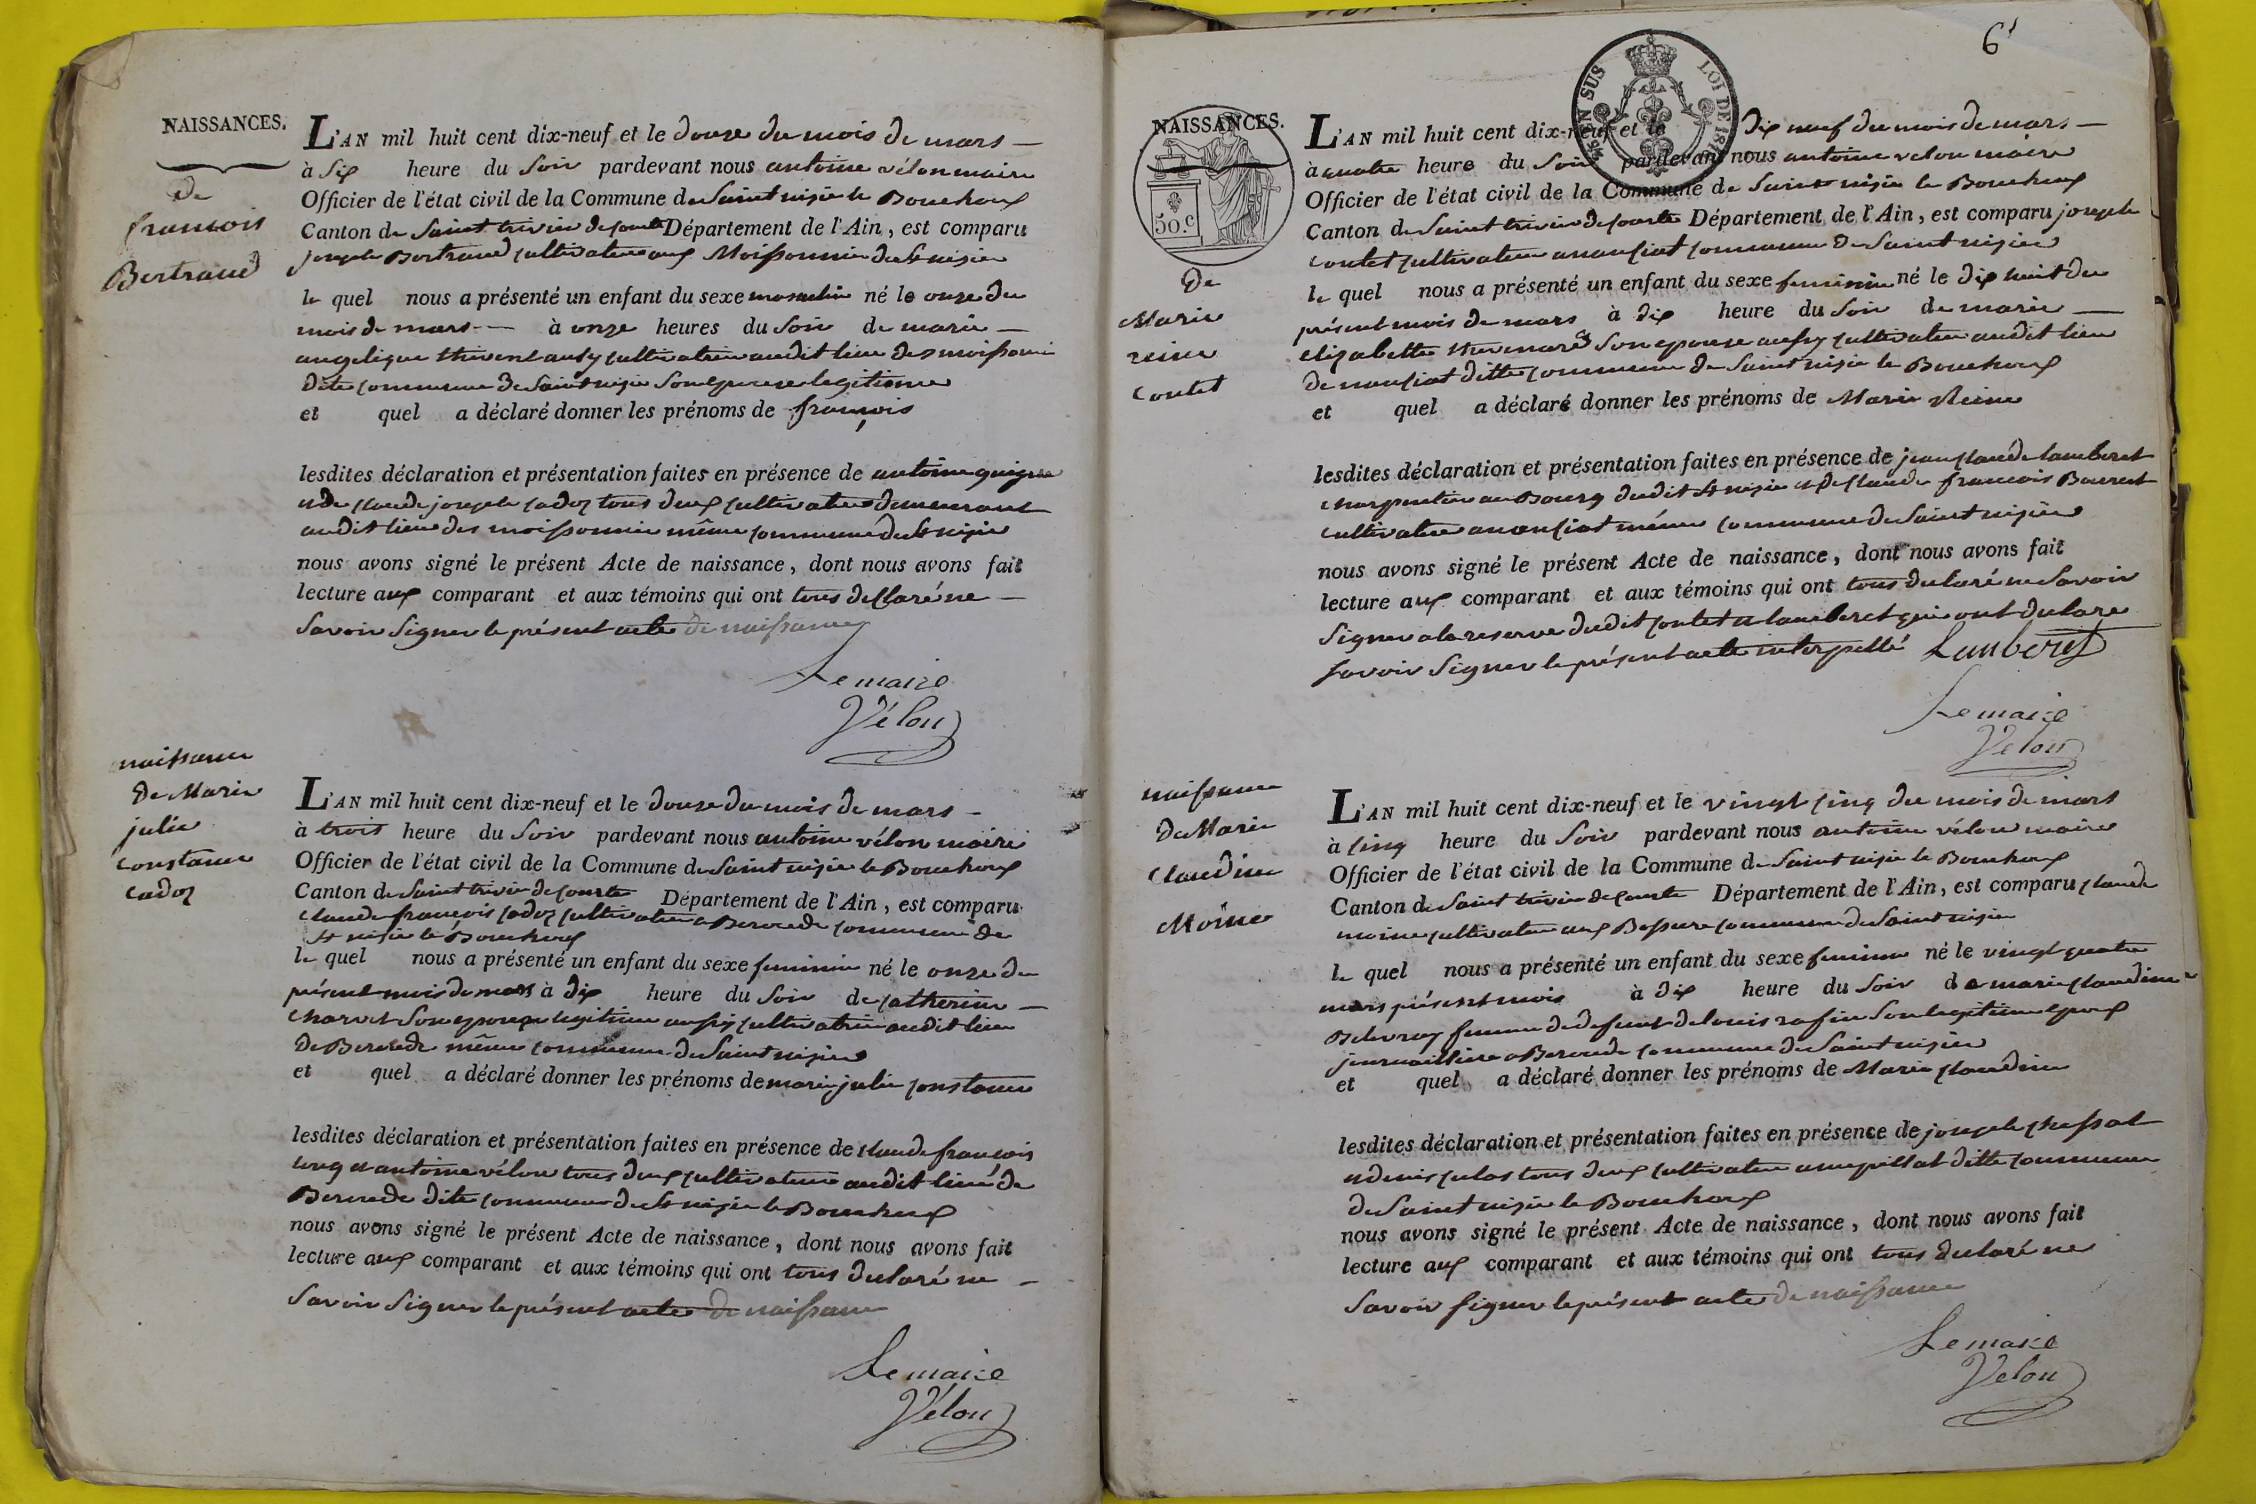 NAISSANCES.
de
francois
Bertrand
L'AN mil huit cent dix-neuf et le douze du mois de mars
à six heure du soir pardevant nous antoine vélon maire
Officier de l'état civil de la Commune de Saint nizier le Bouchoux
Canton de Saint trivier de courtes Département de l'Ain, est comparu
joseph Bertrand cultivateur aux Moissonnier de St nizier
le quel nous a présenté un enfant du sexe masculin né le onze du
mois de mars à onze heures du soir de marie
angelique thivent aussy cultivatrice audit lieu des moissonnier
dite commune de Saint nizier Son epouse legitime
et quel a déclaré donner les prénoms de françois
lesdites déclaration et présentation faites en présence de antoine
et de claude joseph cadoz tous deux cultivateurs demeurant
audit lieu des moissonnier même commune de St nizier
nous avons signé le présent Acte de naissance, dont nous avons fait
lecture aux comparant et aux témoins qui ont tous desclaré ne
savoir signer le présent acte de naissance
Le maire
Vélon
naissance
de Marie
julie
constance
cadoz
L'AN mil huit cent dix-neuf et le douze du mois de mars
à trois heure du soir pardevant nous antoine vélon maire
Officier de l'état civil de la Commune de Saint nizier le Bouchoux
Canton de Saint trivier de courtes Département de l'Ain, est comparu
claude françois cadoz cultivateur a Berconde commune de
St nizier le Bouchoux
le quel nous a présenté un enfant du sexe feminin né le onze du
présent mois de mars à dix heure du soir de catherine
charvet Son epouse legitime aussy cultivatrice audit lieu
de même commune de Saint nizier
et quel a déclaré donner les prénoms de marie julie constance
lesdites déclaration et présentation faites en présence de claude françois
et antoine vélon tous deux cultivateurs audit lieu de
dite commune de St nizier le Bouchoux
nous avons signé le présent Acte de naissance, dont nous avons fait
lecture aux comparant et aux témoins qui ont tous declaré ne
savoir signer le présent acte de naissance
Le maire
Vélon
6
EN SUS
LOI DE 181
NAISSANCES.
50.c
de
Marie
reine
contet
L'AN mil huit cent dix-neuf et le dix neuf du mois de mars
à quatre heure du soir pardevant nous antoine velon maire
Officier de l'état civil de la Commune de Saint nizier le Bouchoux
Canton de Saint trivier de courtes Département de l'Ain, est comparu joseph
contet cultivateur a commune de Saint nizier
le quel nous a présenté un enfant du sexe feminin né le dix huit du
présent mois de mars à dix heure du soir de marie
elizabette Son epouse aussy cultivatrice audit lieu
de ditte commune de Saint nizier le Bouchoux
et quel a déclaré donner les prénoms de Marie Reine
lesdites déclaration et présentation faites en présence de jean claude lamberet
charpentier au Bourg dudit St nizier et de claude francois
cultivateur a même commune de Saint nizier
nous avons signé le présent Acte de naissance, dont nous avons fait
lecture aux comparant et aux témoins qui ont tous declaré ne savoir
signer a la reserve dudit contet et lamberet qui ont declare
savoir signer le présent acte interpellé Lamberet
Le maire
Velon
naissance
de Marie
claudine
Moine
L'AN mil huit cent dix-neuf et le vingt cinq du mois de mars
à cinq heure du soir pardevant nous antoine vélon maire
Officier de l'état civil de la Commune de Saint nizier le Bouchoux
Canton de Saint trivier de courtes Département de l'Ain, est comparu claude
moine cultivateur aux commune de Saint nizier
le quel nous a présenté un enfant du sexe feminin né le vingt quatre
mars présent mois à dix heure du soir de marie claudine
femme de defunt de louis Son legitime epoux
journailliere a commune de Saint nizier
et quel a déclaré donner les prénoms de Marie claudine
lesdites déclaration et présentation faites en présence de joseph
et denis tous deux cultivateur a ditte commune
de Saint nizier le Bouchoux
nous avons signé le présent Acte de naissance, dont nous avons fait
lecture aux comparant et aux témoins qui ont tous declaré ne
savoir signer le présent acte de naissance
Le maire
Velon